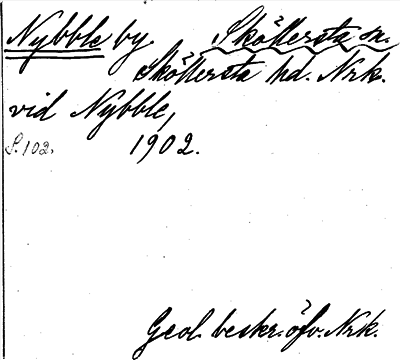 Nybble by Sköllersta sn.
Sköllersta hd. Nrk.
vid Nybble,
S. 102. 1902.
Geol. beskr. öfv. Nrk.